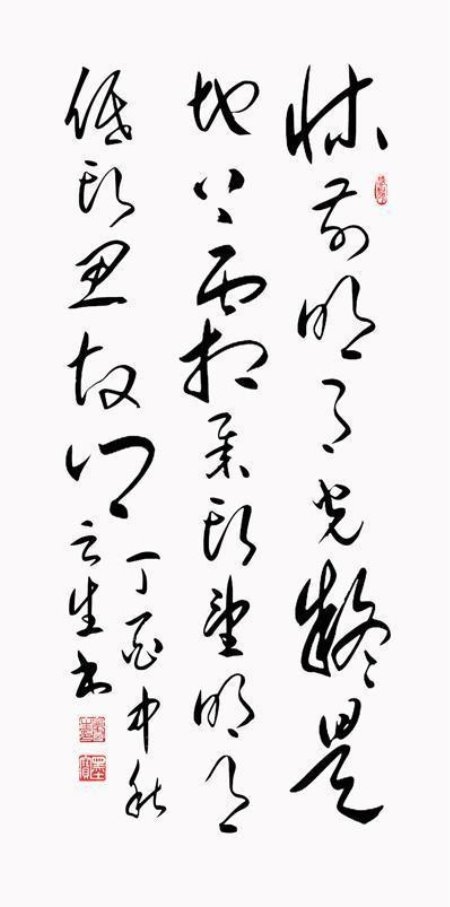 床前明月光疑是
地上霜举头望明月
低头思故乡
丁酉中秋
云生书